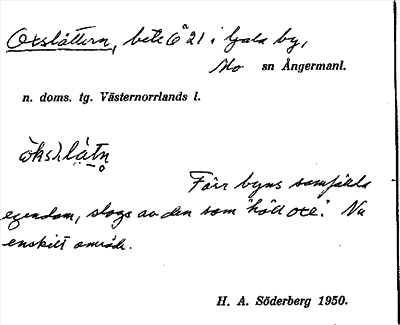 Oxslåttern, bete 6ᵃ21 i Gala by,
Mo sn Ångermanl.
n. doms. tg. Västernorrlands l.
Förr byns samfällda
egendom, slogs av den som "höll oxe". Nu
enskilt område.
H. A. Söderberg 1950.